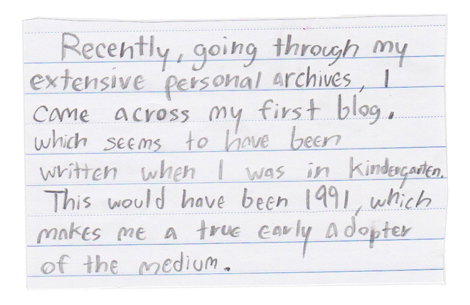 Recently, going through my
extensive personal archives, I
came across my first blog.
which seems to have been
written when I was in kindergarten.
This would have been 1991, which
makes me a true early adopter
of the medium.